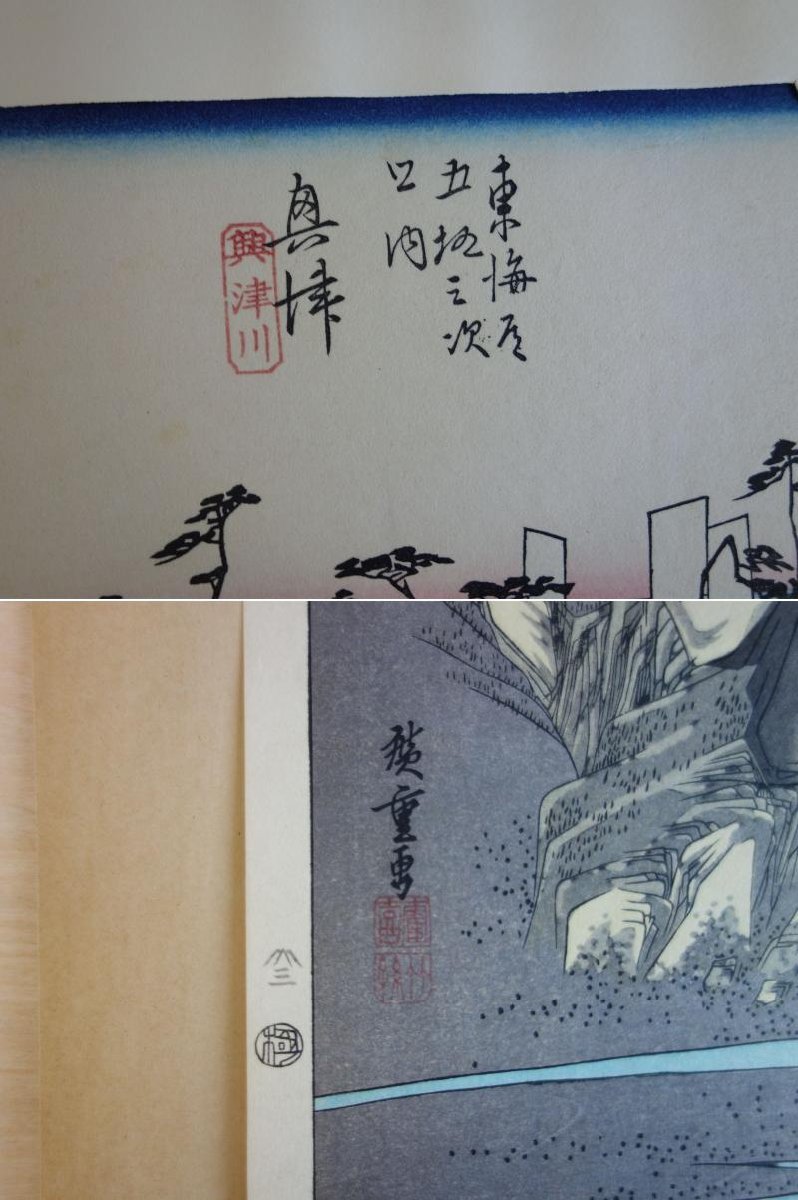 東海道
五拾三次
之内
奥津
興津川
廣重画
極